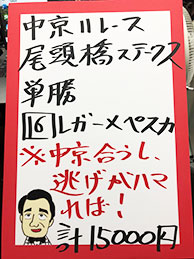 中京11レース
尾頭橋ステークス
単勝
16 レガーメペスカ
※中京合うし、
逃げがハマ
れば!
計15000円